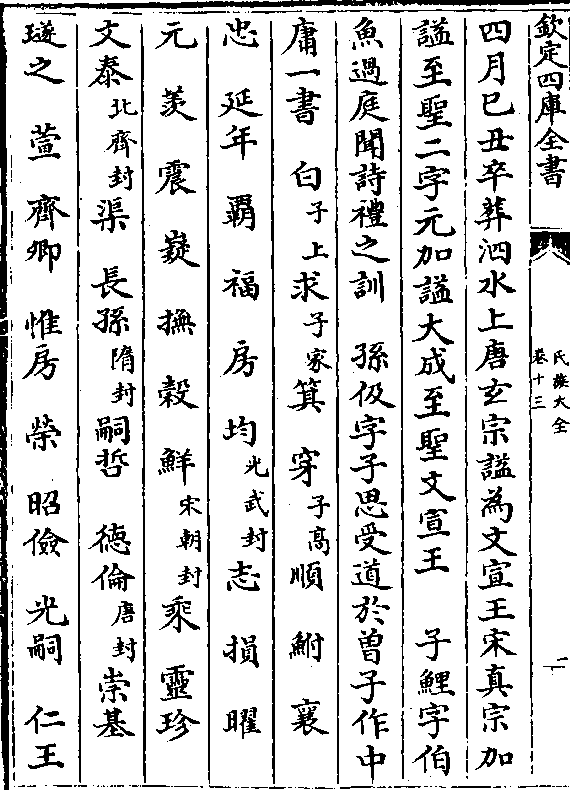 欽定四庫全書
氏族大全
卷十三
二
四月己丑卒葬泗水上唐玄宗謚為文宣王宋真宗加
謚至聖二字元加謚大成至聖文宣王 子鯉字伯
魚過庭聞詩禮之訓 孫伋字子思受道於曾子作中
庸一書 白子上求子家箕 穿子高順 鮒 襄
忠 延年 霸 福 房 均光武封志 損 曜
元 羡 震 嶷 撫 㲄 鮮宋朝封乘 靈珍
文泰北齊封渠 長孫隋封嗣哲 德倫唐封崇基
璲之 萱 齊卿 惟昉 榮 昭儉 光嗣 仁玉